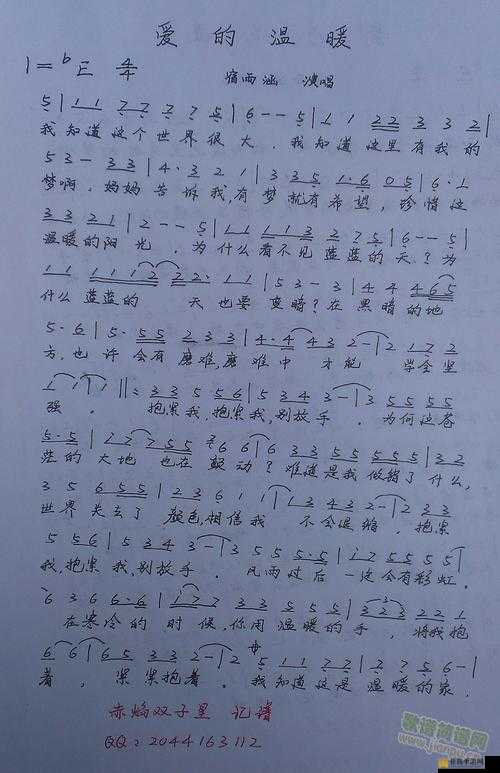 爱的温暖
1=bE 4/4 宿雨涵 演唱
5|1 1 7 7 7 7 5|6 - - 5|1 1 2 2 3 3 2|
我知道这个世界很大，我知道这里有我的
5 3 - 3 3|4· 3 2 1|3 3 5 1·6 0 5|6·1
梦啊，妈妈告诉我，有梦就有希望，珍惜这
3 3 2 1|2 - - 5|1 1 1 1 3 2 7 5|6 - - 5|
温暖的阳光，为什么看不见蓝蓝的天？为
1 1 1 1 1 2 2 2· 1 1|5 3 - 3|4 4 4 6 5
什么蓝蓝的天也要变暗？在黑暗的地
5·6|5· 5 5 2 3 3|4·4 4 3 2 -|2 1 7 2
方，也许会有磨难，磨难中才能学会坚
1 1|1 1‖: 3 3 5 5 6|5 3 4 3 -|3 5 5 5 5
强。抱紧我，抱紧我，别放手，为何这苍
5·5|1 7 7 5 5 6 6|6 3 3 5 5 5 5 5|3 2
茫的大地也在颤动？难道是我做错了什么，
3 5 6 5 5|2 3 6 1 1|1 3 4 3 2 -|2 3 3
世界失去了颜色，相信我不会退缩，抱紧
5 5 6|5 3 4 3 -|3 5 5 5·5|1 7 5 5 5 5|
我，抱紧我，别放手，风雨过后一定会有彩虹，
6 3 6 6·6|1 7 7 3 3 5 5 5|3 2 3 2 2 1
在寒冷的时候，你用温暖的手，将我抱
6 6|6 5 3 3 2 -|2 5 1 1 2 2|2 7 5 6 -|
着，紧紧抱着。我知道这是温暖的家，
赤焰双子星 记谱
QQ：2044163112
歌谱简谱网
www.jianpu.cn